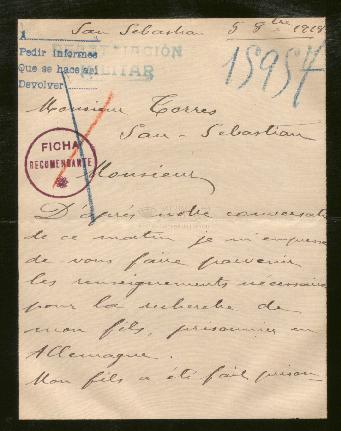 San Sebastian 5 8bre 1918
A
Pedir informes
Que se hace así
Devolver
MILITAR
15954
Monsieur Torres
San-Sebastian
FICHA
RECOMENDANTE
Monsieur
D'après notre conversat
de ce matin je m'empresse
de vous faire parvenir
les renseignements nécessaires
pour la recherche de
mon fils, prisonnier en
Allemagne.
Mon fils a été fait prison